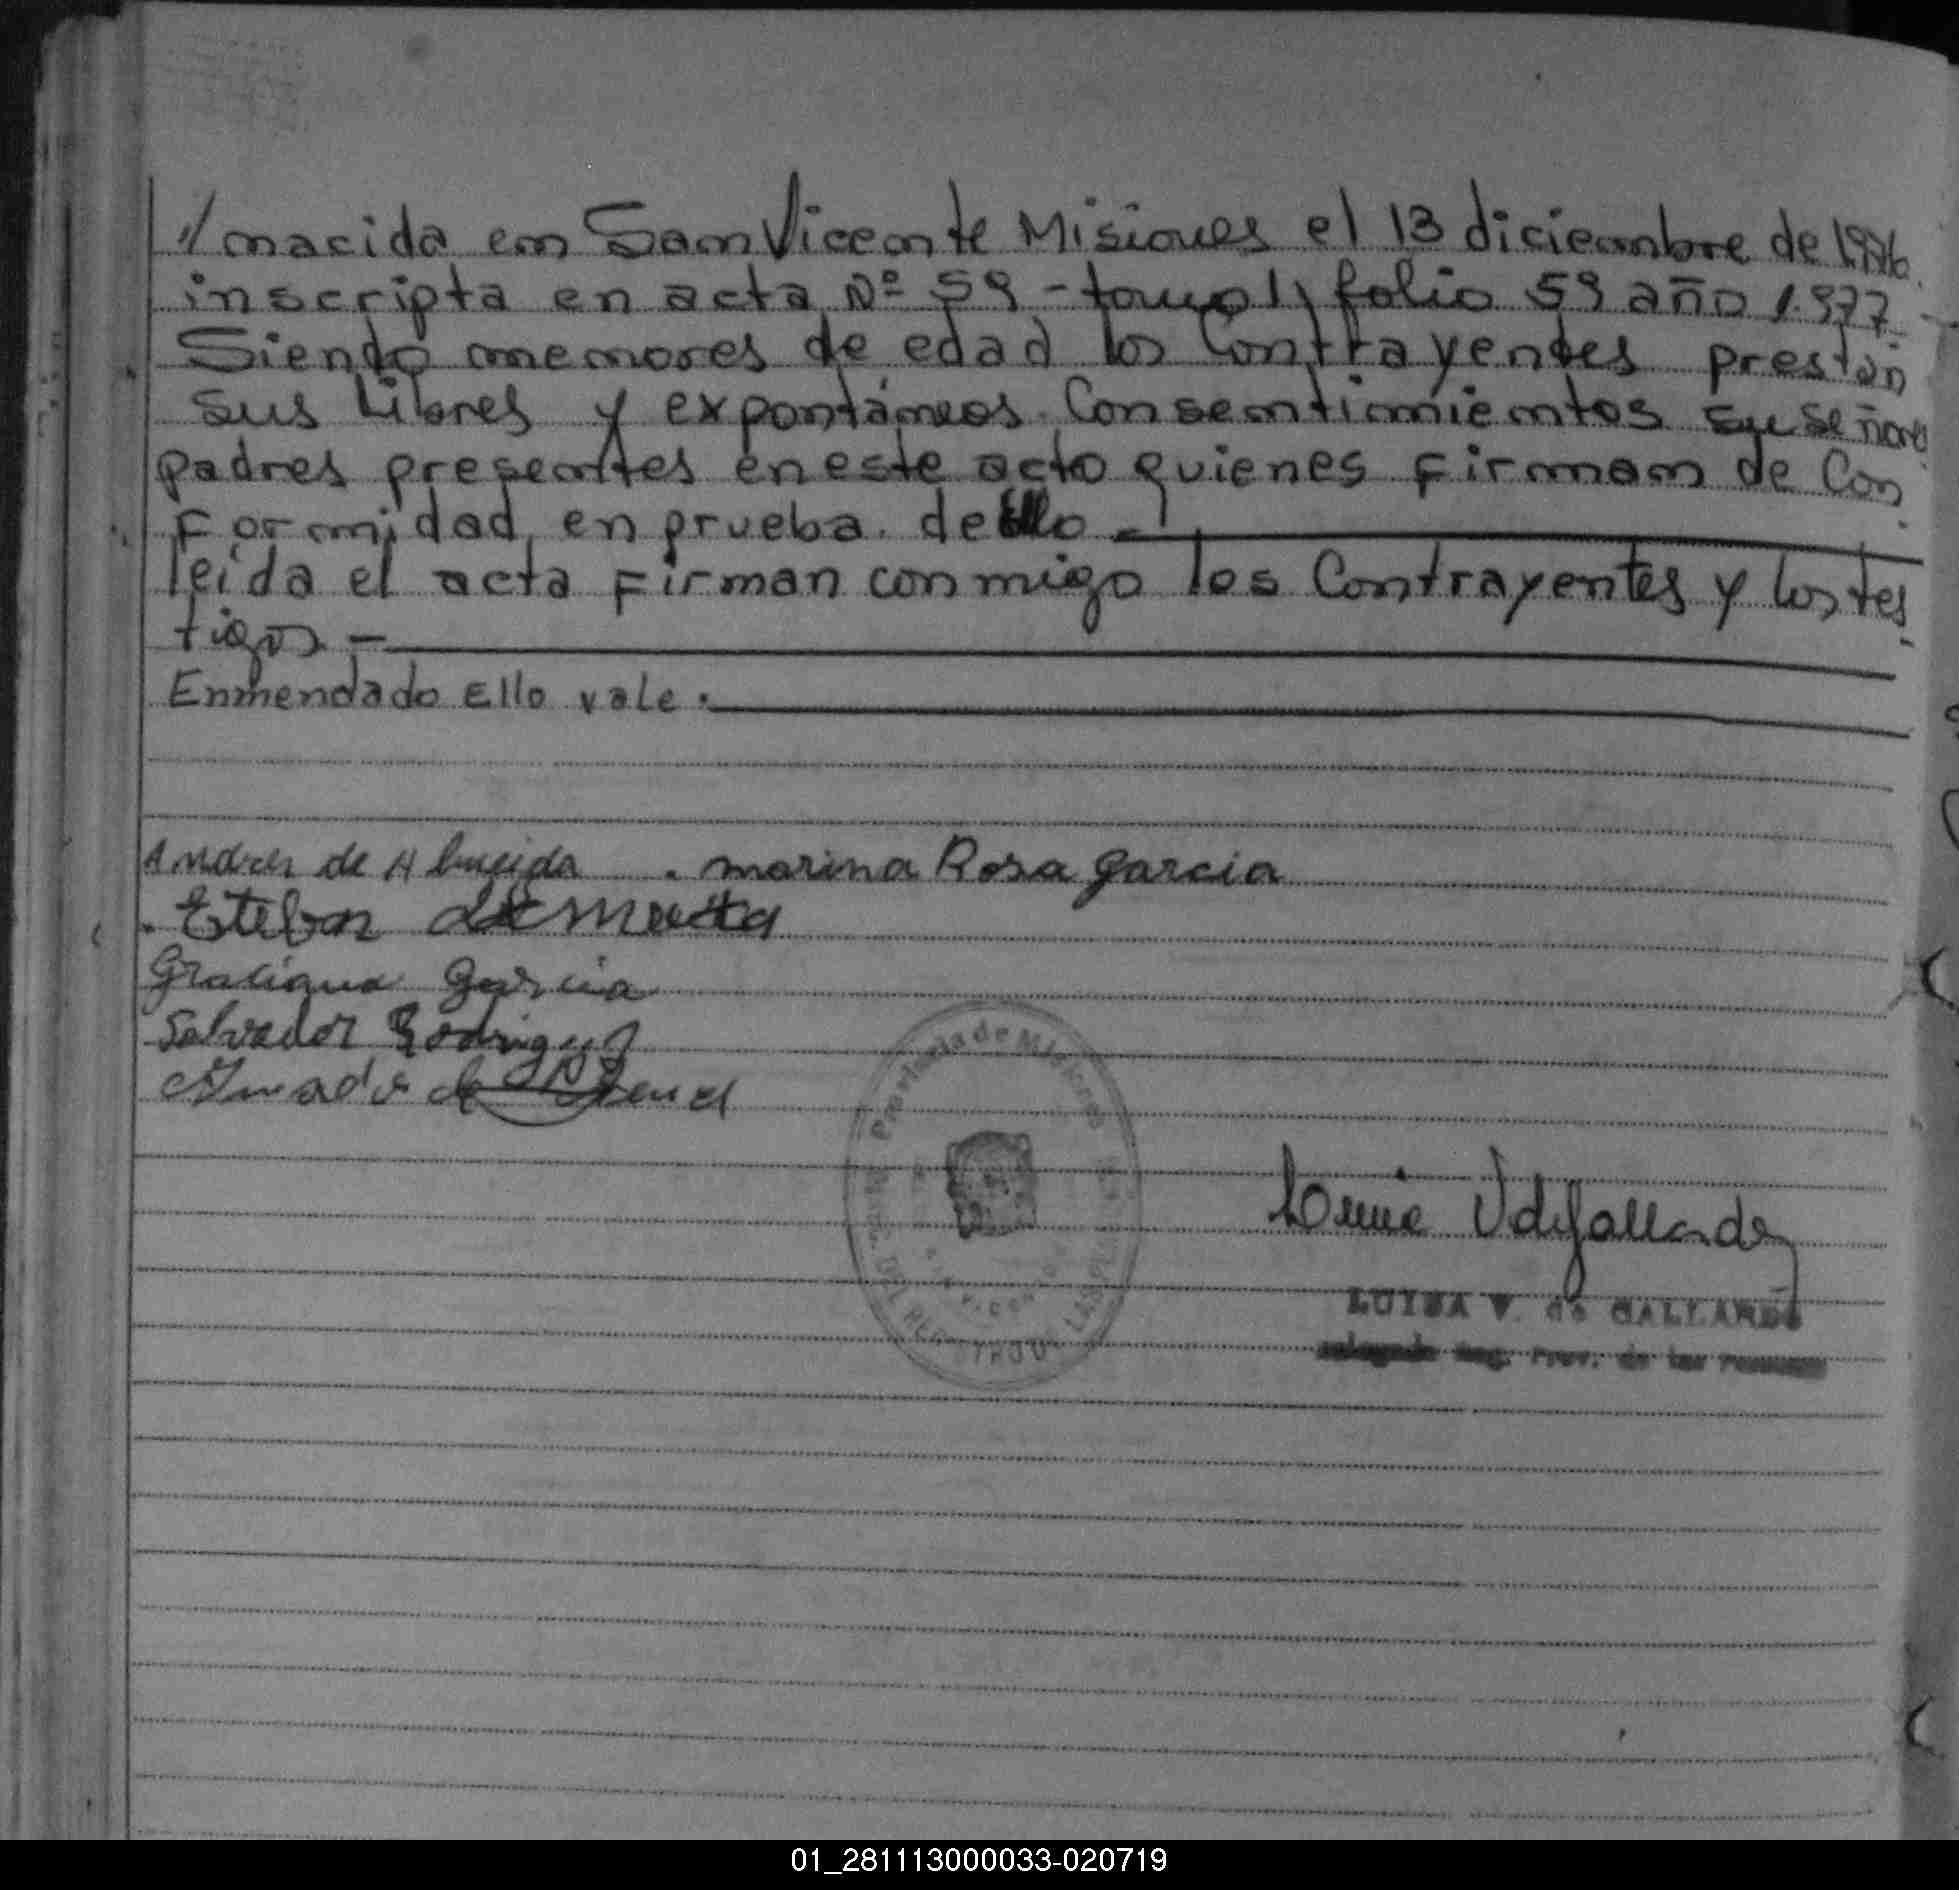 // nacida en San Vicente Misiones el 13 diciembre de 1.976.
inscripta en acta Nº 59 - tomo 1, folio 59 año 1.977
Siendo menores de edad los Contrayentes prestan
sus libres y expontáneos Consentimientos sus señores
padres presentes en este acto quienes firman de Con
formidad en prueba dello -
leída el acta firman conmigo los Contrayentes y los tes
tigos -
Enmendado Ello vale.
Andres de Almeida . marina Rosa Garcia
Esteban
Graciana Garcia
Salvador Rodriguez
Provincia de Misiones
LUISA V. de GALLARDO
Reg. Prov. de las Personas
01_281113000033-020719